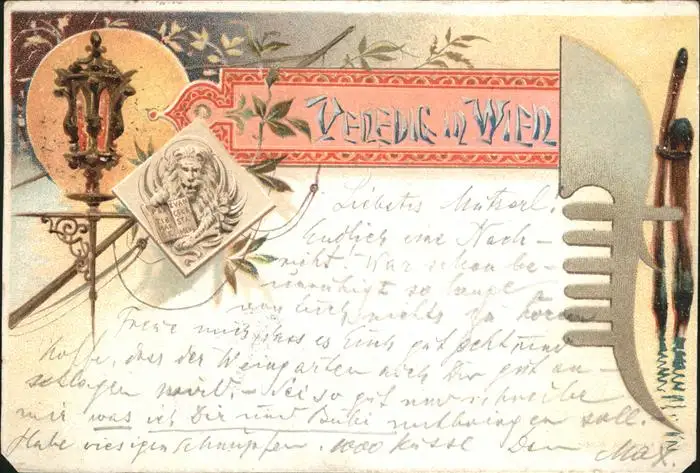 VENEDIG IN WIEN
EVAN
GELI
STA
Liebstes Mutzerl!
Endlich eine Nach-
richt! War schon be-
unruhigt so lange
von Euch nichts zu hören
Freue mich dass es Euch gut geht und
hoffe, dass der Weingarten auch Dir gut an-
schlagen wird. – Sei so gut und schreibe
mir was ich Dir und Bubi mitbringen soll.
Habe riesigen Schnupfen. 1000 Küsse Dein Max.